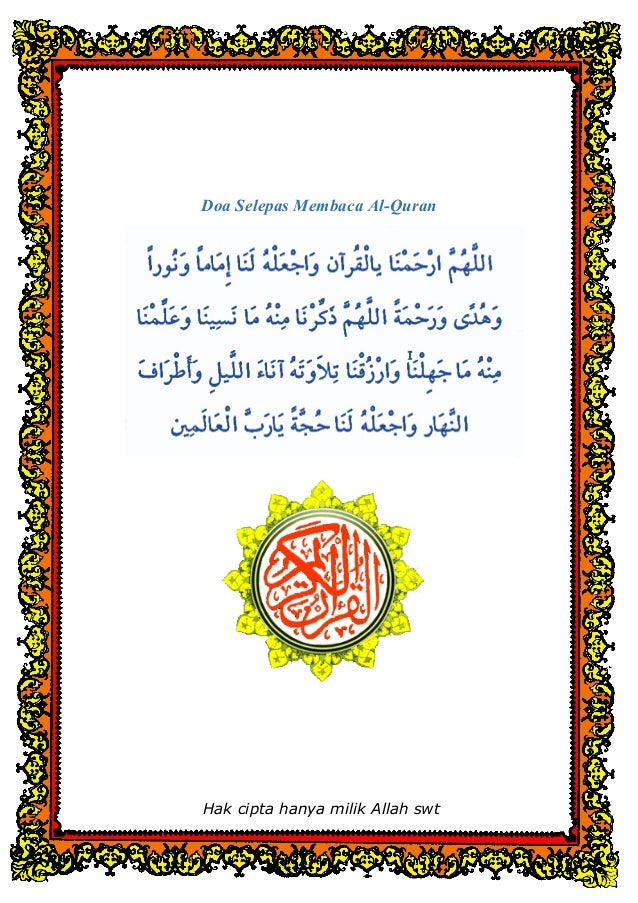 Doa Selepas Membaca Al-Quran
اللَّهُمَّ ارْحَمْنَا بِالْقُرْآنِ وَاجْعَلْهُ لَنَا إِمَاماً وَنُوراً
وَهُدًى وَرَحْمَةً اللَّهُمَّ ذَكِّرْنَا مِنْهُ مَا نَسِينَا وَعَلِّمْنَا
مِنْهُ مَا جَهِلْنَا وَارْزُقْنَا تِلَاوَتَهُ آنَاءَ اللَّيلِ وَأَطْرَافَ
النَّهَارِ وَاجْعَلْهُ لَنَا حُجَّةً يَارَبَّ الْعَالَمِين
القرآن الكريم
Hak cipta hanya milik Allah swt